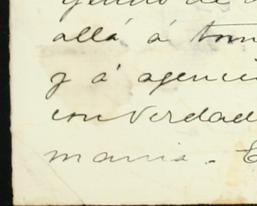 allá á tom
y á agenci
con verdad
mania.